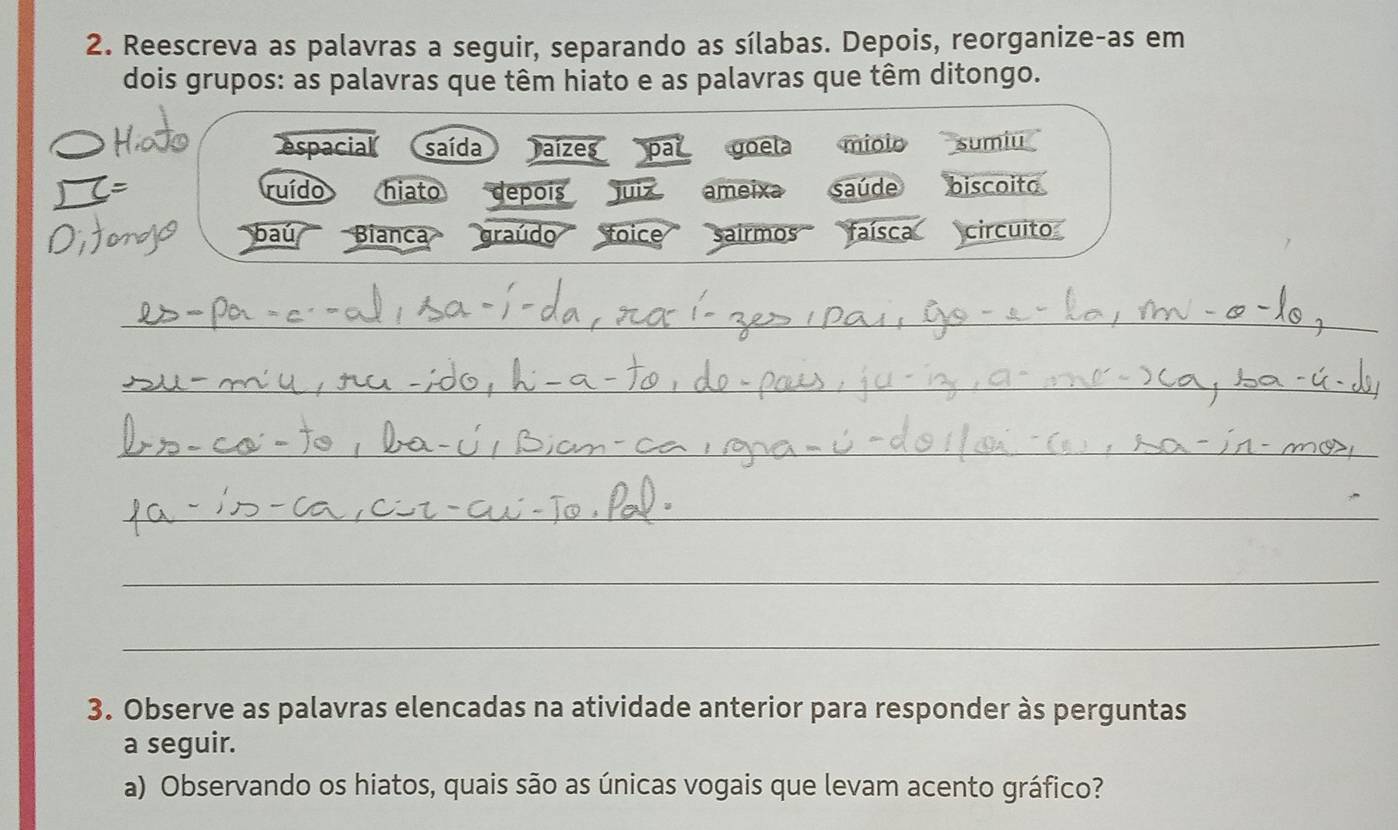 2. Reescreva as palavras a seguir, separando as sílabas. Depois, reorganize-as em
dois grupos: as palavras que têm hiato e as palavras que têm ditongo.
Hiato
espacial saída raízes pai goela miolo sumiu
=
ruído hiato depois juiz ameixa saúde biscoito
Ditongo
baú Bianca graúdo foice sairmos faísca circuito
es-pa-ci-al, sa-í-da, ra-í-zes, pai, go-e-la, mi-o-lo,
su-miu, ru-ido, hi-a-to, de-pois, ju-iz, a-mei-xa, sa-ú-de,
bis-coi-to, ba-ú, Bian-ca, gra-ú-do, foi-ce, sa-ir-mos,
fa-ís-ca, cir-cui-to. Pal.
3. Observe as palavras elencadas na atividade anterior para responder às perguntas
a seguir.
a) Observando os hiatos, quais são as únicas vogais que levam acento gráfico?